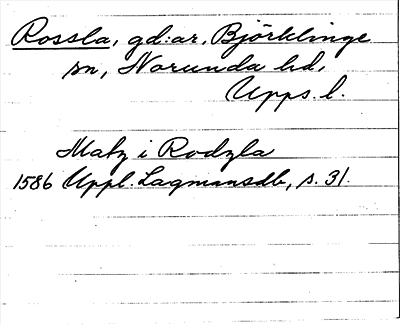 Rossla, gd:ar, Björklinge
sn, Norunda hd,
Upps. l.
Matz i Rodzla
1586 Uppl. Lagmansdb, s. 31.